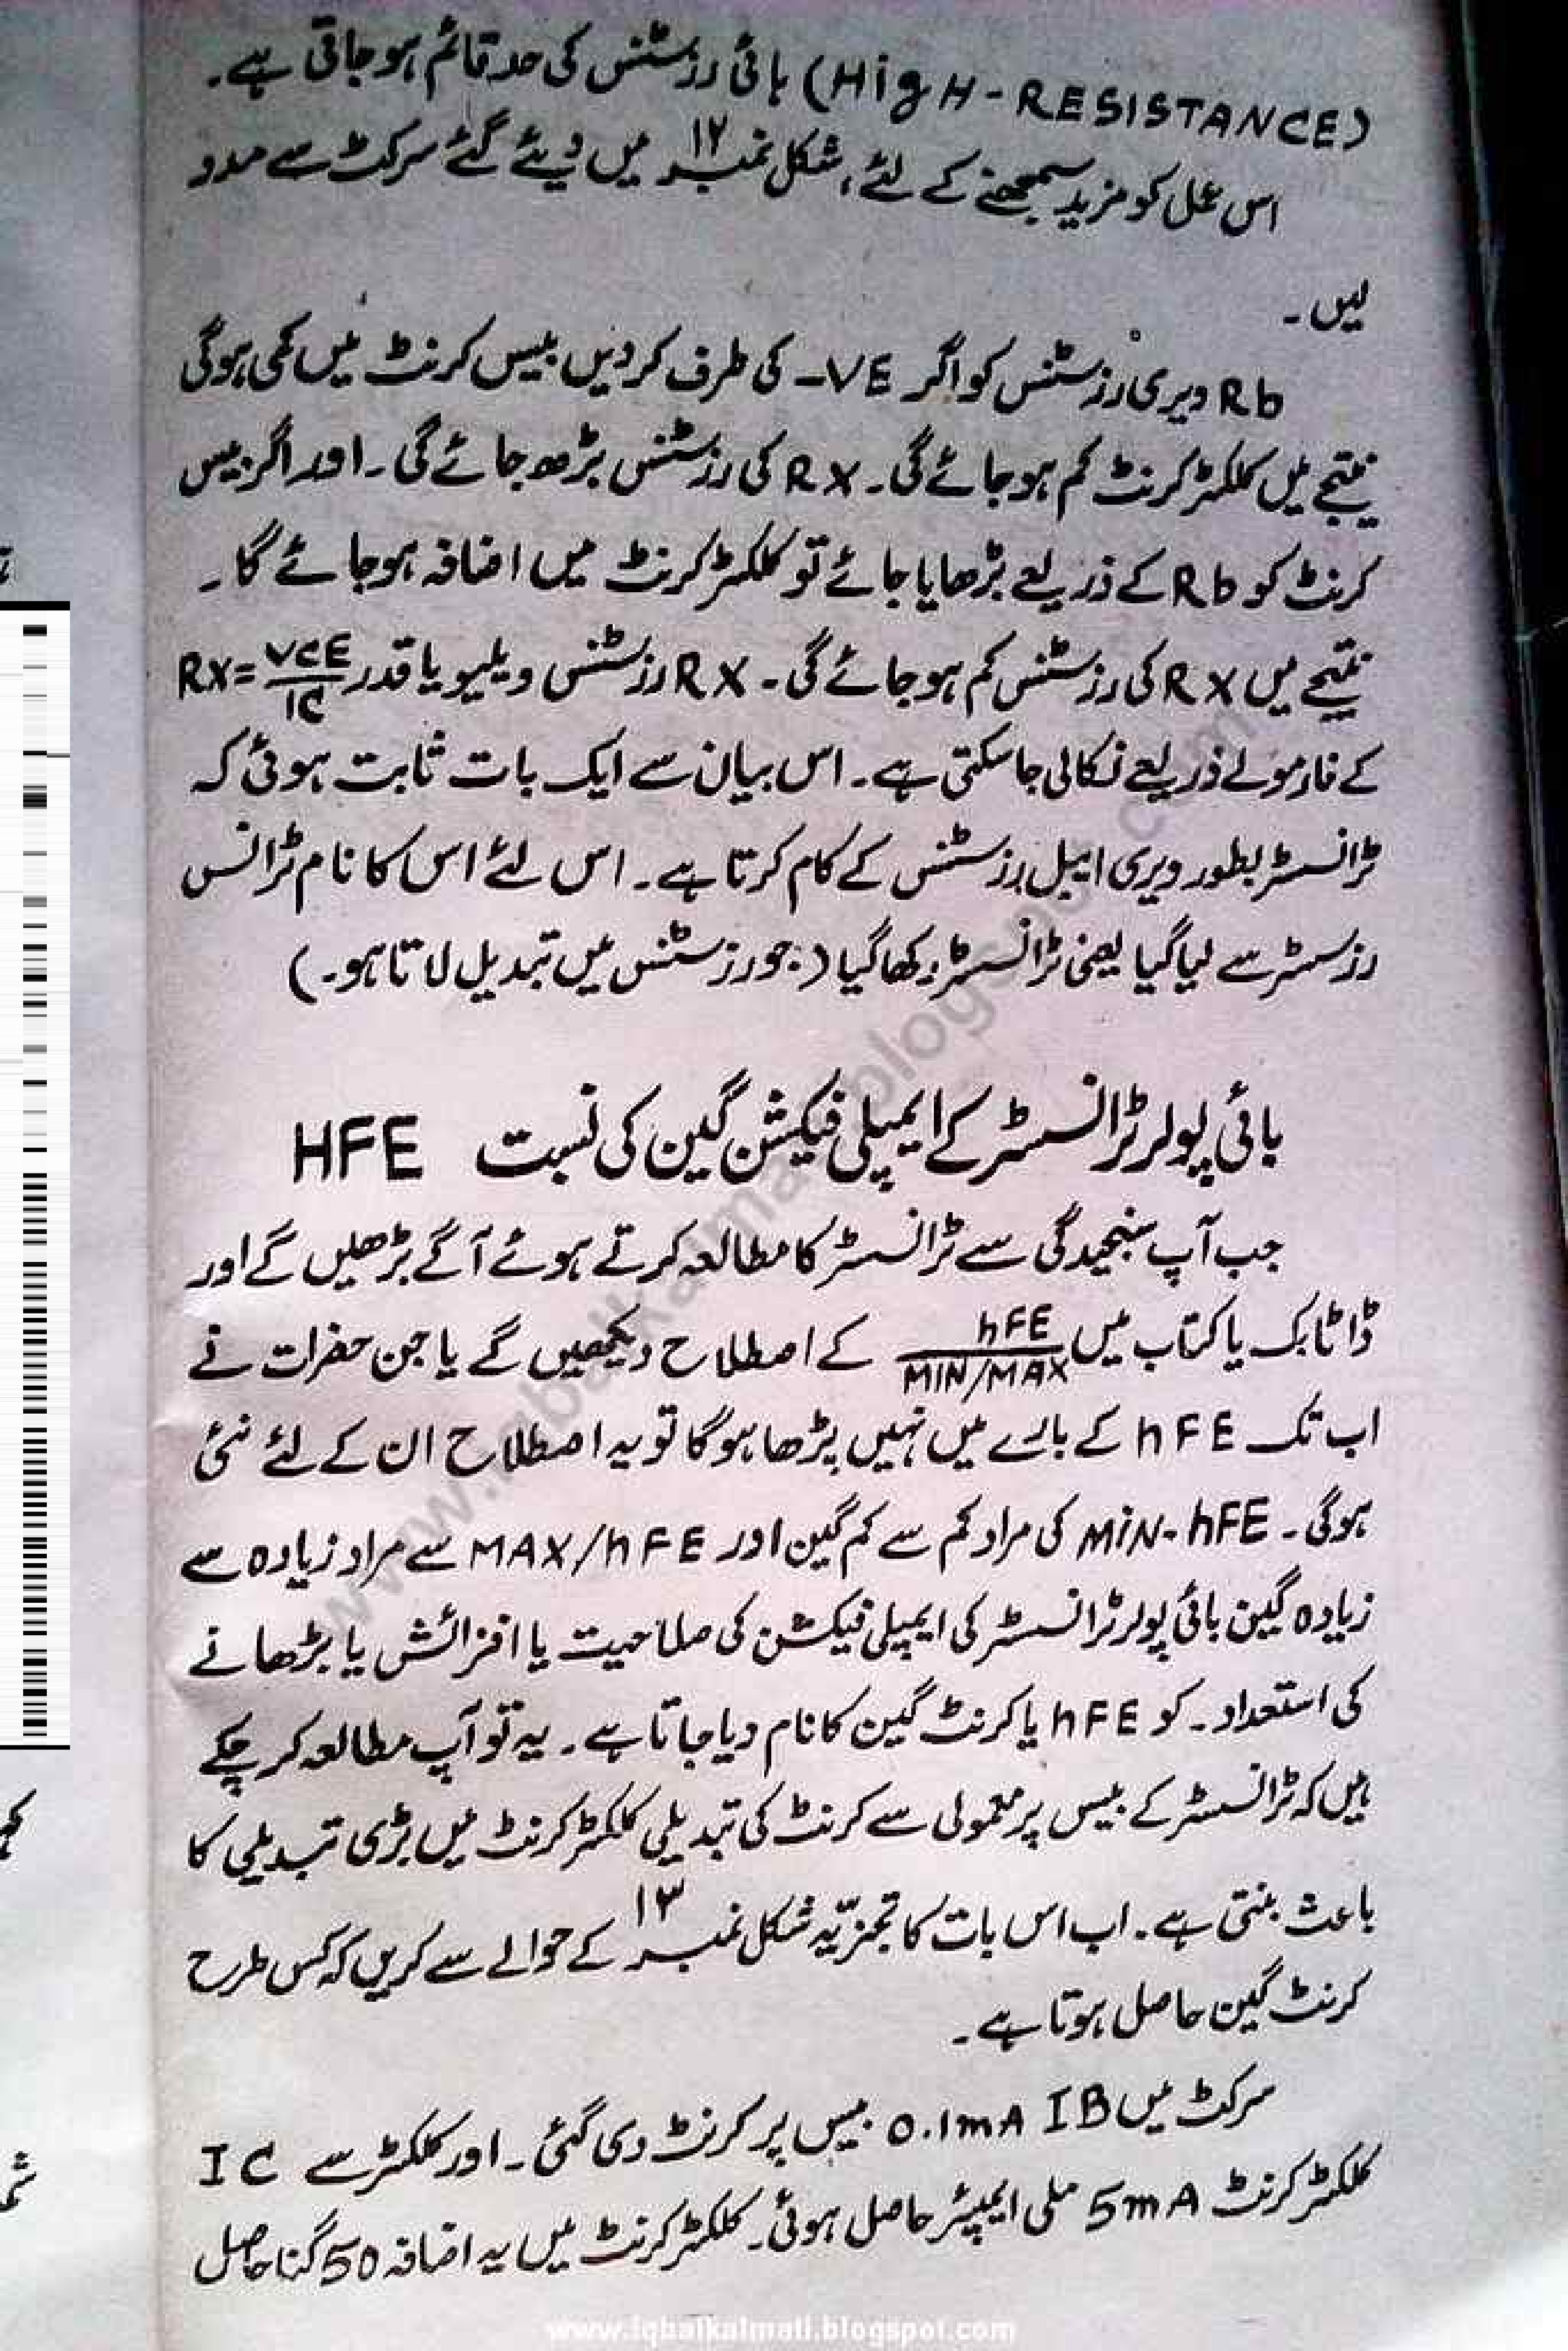 (HigH-RESISTANCE) ہائی رزسٹنس کی حد قائم ہوجاتی ہے۔
اس عمل کو مزید سمجھنے کے لئے، شکل نمبر ۱۲ میں دیئے گئے سرکٹ سے مدد
لیں۔
Rb ویری رزسٹنس کو اگر VE- کی طرف کردیں بیس کرنٹ میں کمی ہوگی
نتیجے میں کلکٹر کرنٹ کم ہوجائے گی۔ RX کی رزسٹنس بڑھ جائے گی۔ اور اگر بیس
کرنٹ کو Rb کے ذریعے بڑھایا جائے تو کلکٹر کرنٹ میں اضافہ ہوجائے گا۔
نتیجے میں RX کی رزسٹنس کم ہوجائے گی۔ RX رزسٹنس ویلیو یا قدر RX=VCE/IC
کے فارمولے ذریعے نکالی جاسکتی ہے۔ اس بیان سے ایک بات ثابت ہوئی کہ
ٹرانسسٹر بطور ویری ایبل رزسٹنس کے کام کرتا ہے۔ اس لئے اس کا نام ٹرانس
رزسسٹر سے لیا گیا یعنی ٹرانسسٹر رکھا گیا (جو رزسٹنس میں تبدیل لاتا ہو۔)
بائی پولر ٹرانسسٹر کے ایمپلی فیکشن گین کی نسبت HFE
جب آپ سنجیدگی سے ٹرانسسٹر کا مطالعہ کرتے ہوئے آگے بڑھیں گے اور
ڈاٹا بک یا کتاب میں hFE/MIN/MAX کے اصطلاح دیکھیں گے یا جن حضرات نے
اب تک hFE کے بارے میں نہیں پڑھا ہوگا تو یہ اصطلاح ان کے لئے نئی
ہوگی۔ MiN-hFE کی مراد کم سے کم گین اور MAX/hFE سے مراد زیادہ سے
زیادہ گین بائی پولر ٹرانسسٹر کی ایمپلی فیکشن کی صلاحیت یا افزائش یا بڑھانے
کی استعداد۔ کو hFE یا کرنٹ گین کا نام دیا جاتا ہے۔ یہ تو آپ مطالعہ کر چکے
ہیں کہ ٹرانسسٹر کے بیس پر معمولی سے کرنٹ کی تبدیلی کلکٹر کرنٹ میں بڑی تبدیلی کا
باعث بنتی ہے۔ اب اس بات کا تجزیّہ شکل نمبر ۱۳ کے حوالے سے کریں کہ کس طرح
کرنٹ گین حاصل ہوتا ہے۔
سرکٹ میں IB 0.1mA بیس پر کرنٹ دی گئی۔ اور کلکٹر سے IC
کلکٹر کرنٹ 5mA ملی ایمپیئر حاصل ہوئی۔ کلکٹر کرنٹ میں یہ اضافہ 50 گنا حاصل
www.iqbalkalmati.blogspot.com